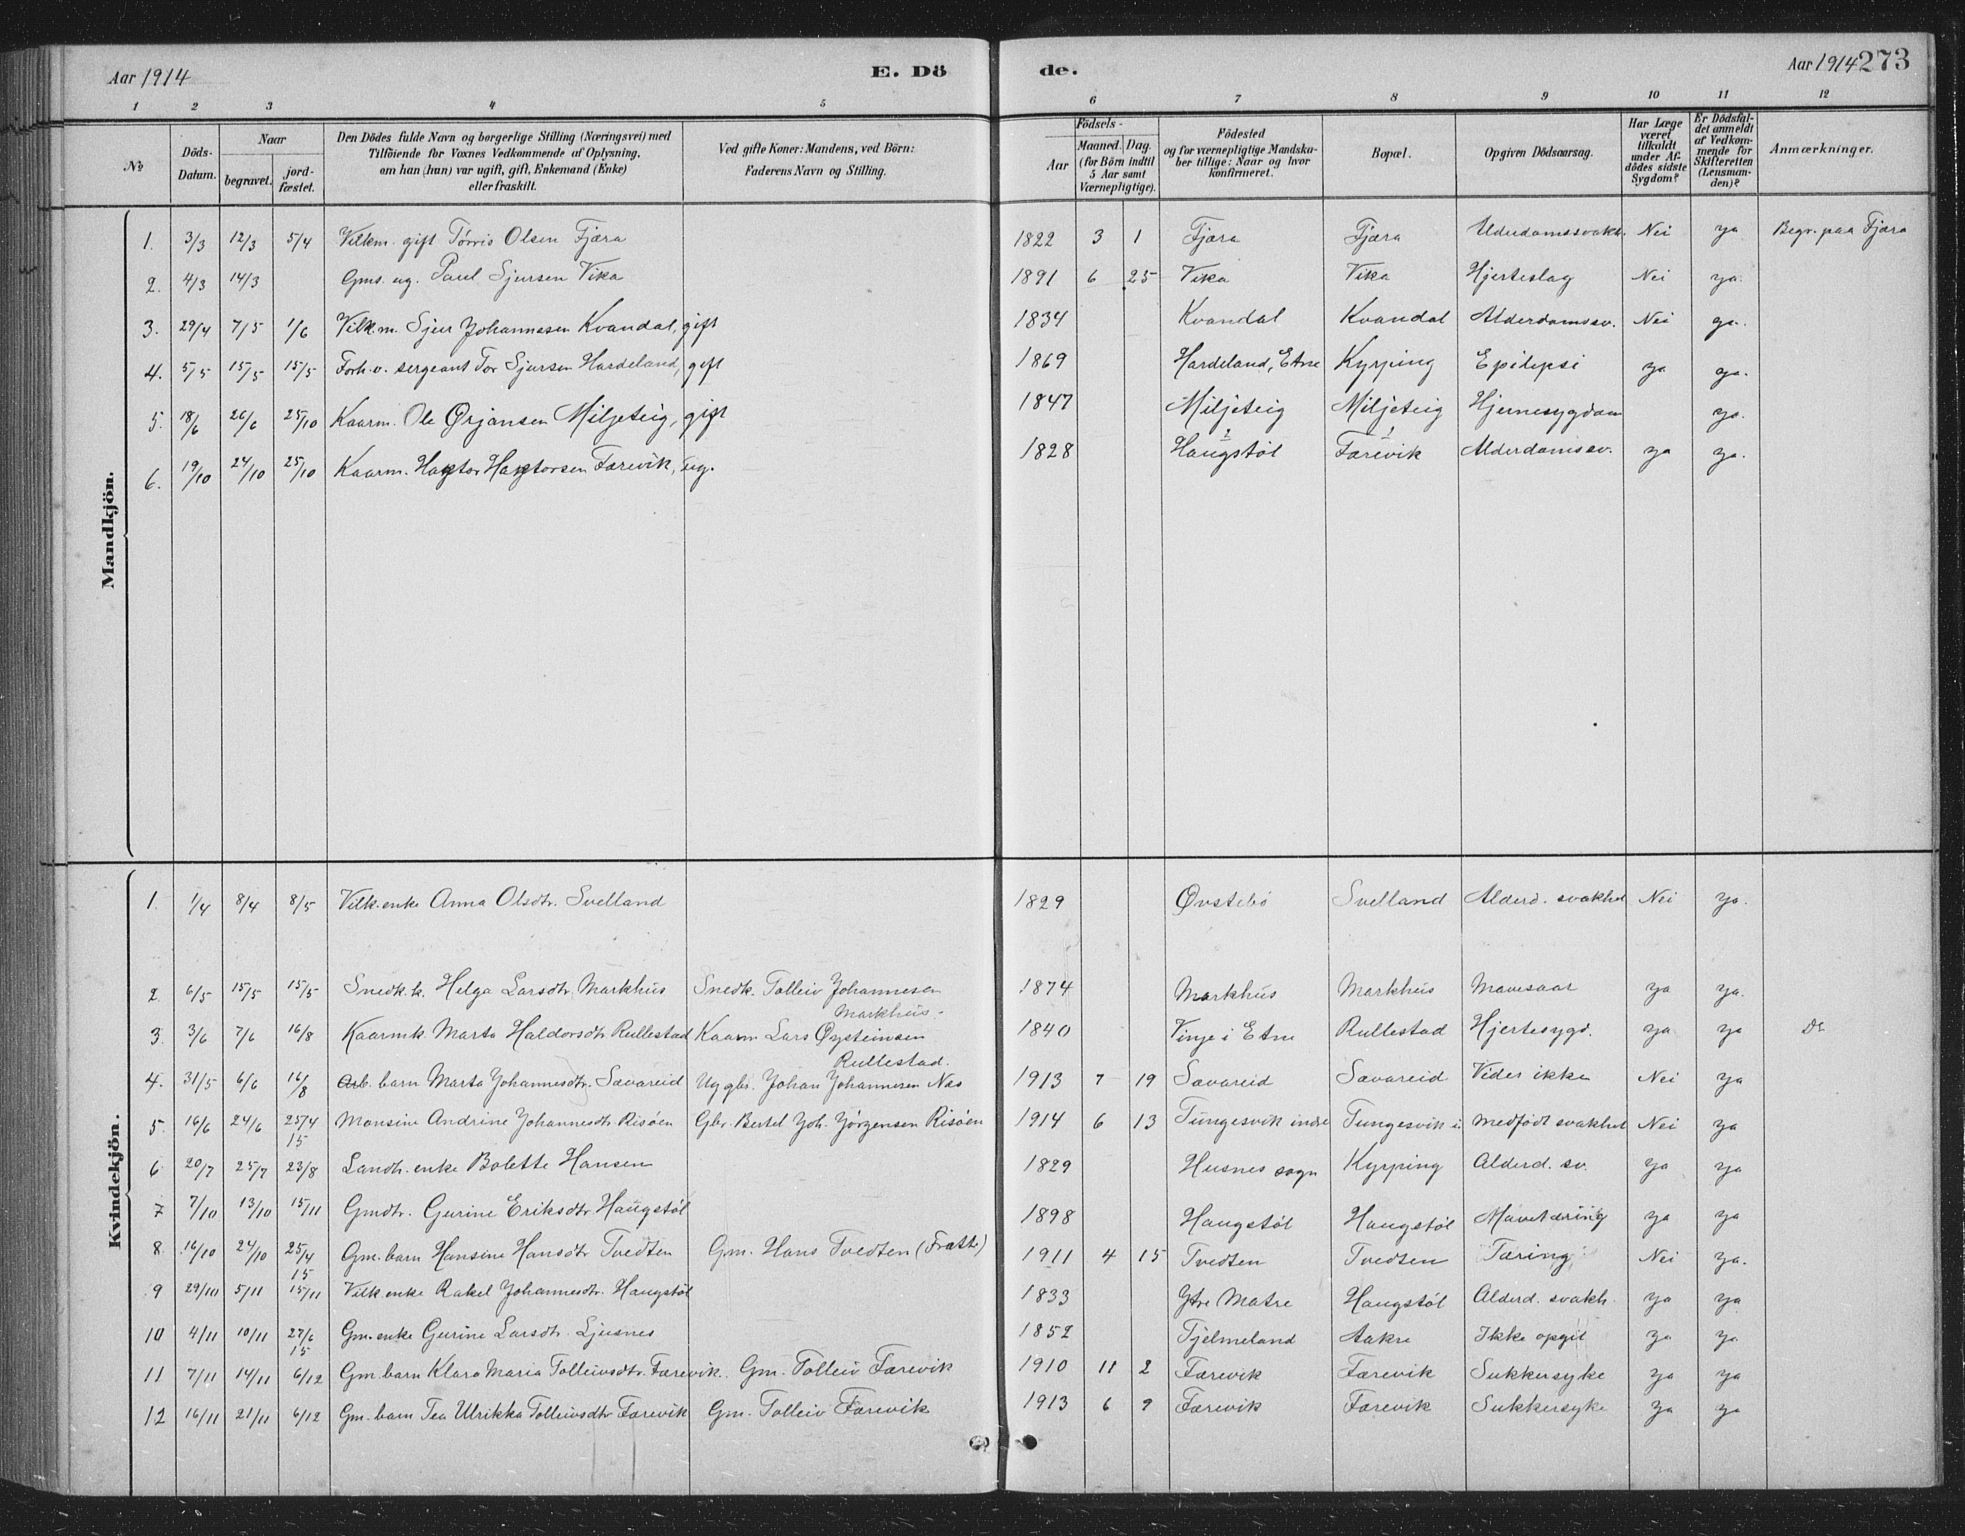 Aar 1914 E. Dö de. Aar 1914 273
1 2 3 4 5 6 7 8 9 10 11 12
No
Döds-
Datum.
Naar
begravet.
jord-
fæstet.
Den Dödes fulde Navn og borgerlige Stilling (Næringsvei) med
Tilföiende for Voxnes Vedkommende af Oplysning,
om han (hun) var ugift, gift, Enkemand (Enke)
eller fraskilt.
Ved gifte Koner: Mandens, ved Börn:
Faderens Navn og Stilling.
Födsels-
Aar
Maaned. Dag.
(for Börn indtil
5 Aar samt
Værnepligtige).
Födested
og for værnepligtige Mandska-
ber tillige: Naar og hvor
konfirmeret.
Bopæl.
Opgiven Dödsaarsag.
Har Læge
været
tilkaldt
under Af-
dödes sidste
Sygdom?
Er Dödsfal-
det anmeldt
af Vedkom-
mende for
Skifteretten
(Lensman-
den)?
Anmærkninger.
Mandkjön.
1. 3/3 12/3 5/4 Vilkm. gift Tørris Olsen Fjæra 1822 3 1 Fjæra Fjæra Nei ja Begr. paa Fjæra
2. 4/3 14/3 Gms. ug. Paul Sjursen Vika 1891 6 25 Vika Vika Hjerteslag Nei ja.
3. 29/4 7/5 1/6 Vilk.m. Sjur Johannesen Kvandal, gift 1834 Kvandal Kvandal Alderdomssv. Nei ja.
4. 5/5 15/5 15/5 Forh.v. sergeant Tor Sjursen Hardeland, gift 1869 Hardeland, Etne Kyrping Epilepsi ja ja.
5. 18/6 26/6 25/10 Kaarm. Ole Ørjansen Miljeteig, gift 1847 Miljeteig Miljeteig Hjernesygdom ja.
6. 19/10 24/10 25/10 Kaarm. Farevik, ug. 1828 Haugstøl Farevik Alderdomssv. ja ja.
Kvindekjön.
1. 1/4 8/4 8/5 Vilk.enke Anna Olsdtr. Svelland 1829 Øvstebø Svelland Alderd. svakhet Nei ja.
2 6/5 15/5 15/5 Snedk.k. Helga Larsdtr. Markhus Snedk. Tolleiv Johannesen
Markhus. 1874 Markhus Markhus Mavesaar ja ja.
3. 3/6 7/6 16/8 Kaarmk. Marta Haldorsdtr Rullestad Kaarm Lars Øysteinsen
Rullestad. 1840 Vinje i Etne Rullestad Hjertesygd. ja ja
4. 31/5 6/6 16/8 Arb. barn Marta Johannesdtr. Sævareid Ug gbr. Johan Johannesen Næs 1913 7 19 Sævareid Sævareid Vides ikke Nei ja
5. 16/6 24/6 25/4 15 Monsine Andrine Johannesdtr Risøen Gbr. Bertel Joh. Jørgensen Risøen 1914 6 13 Tungesvik indre Tungesvik i. medfødt svakhet Nei ja
6 20/7 25/7 23/8 Landh. enke Bolette Hansen 1829 Husnes sogn Kyrping Alderd. sv. ja ja
7 7/10 13/10 15/11 Gmdtr. Gurine Eriksdtr Haugstøl 1898 Haugstøl Haugstøl Mavetæring ja ja
8. 16/10 24/10 25/4 15 Gm. barn Hansine Hansdtr Tvedten Gm. Hans Tvedten 1911 4 15 Tvedten Tvedten Tæring Nei ja.
9 29/10 5/11 15/11 Vilk enke Rakel Johannesdtr. Haugstøl 1833 Ytre Matre Haugstøl Alderd. svakh. ja ja
10 4/11 10/11 27/6 15 Gm. enke Gurine Larsdtr. Ljusnes 1852 Tjelmeland Aakre Ikke opgit ja ja
11 7/11 14/11 6/12 Gm.barn Klara Maria Tolleivsdtr. Farevik. Gm. Tolleiv Farevik 1910 11 2 Farevik Farevik Sukkersyke ja ja
12 16/11 21/11 6/12 Gm. barn Tea Ulrikka Tolleivsdtr Farevik Gm. Tolleiv Farevik 1913 6 9 Farevik Farevik Sukkersyke ja ja